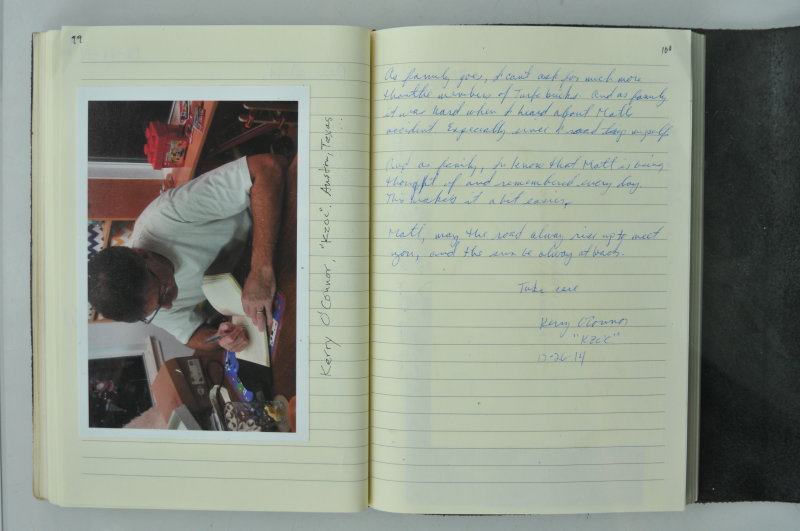 99
Kerry O'Connor, "Kzoc". Austin, Texas
100
As family goes, I can't ask for much more
than the members of Turfe bricks. And as family
it was hard when I heard about Matt's
accident. Especially since I road today myself.
And as family, I know that Matt is being
thought of and remembered every day.
This makes it a bit easier.
Matt, may the road alway rise up to meet
you, and the sun be alway at back.
Take care
Kerry O'Connor
"KZOC"
12-26-14